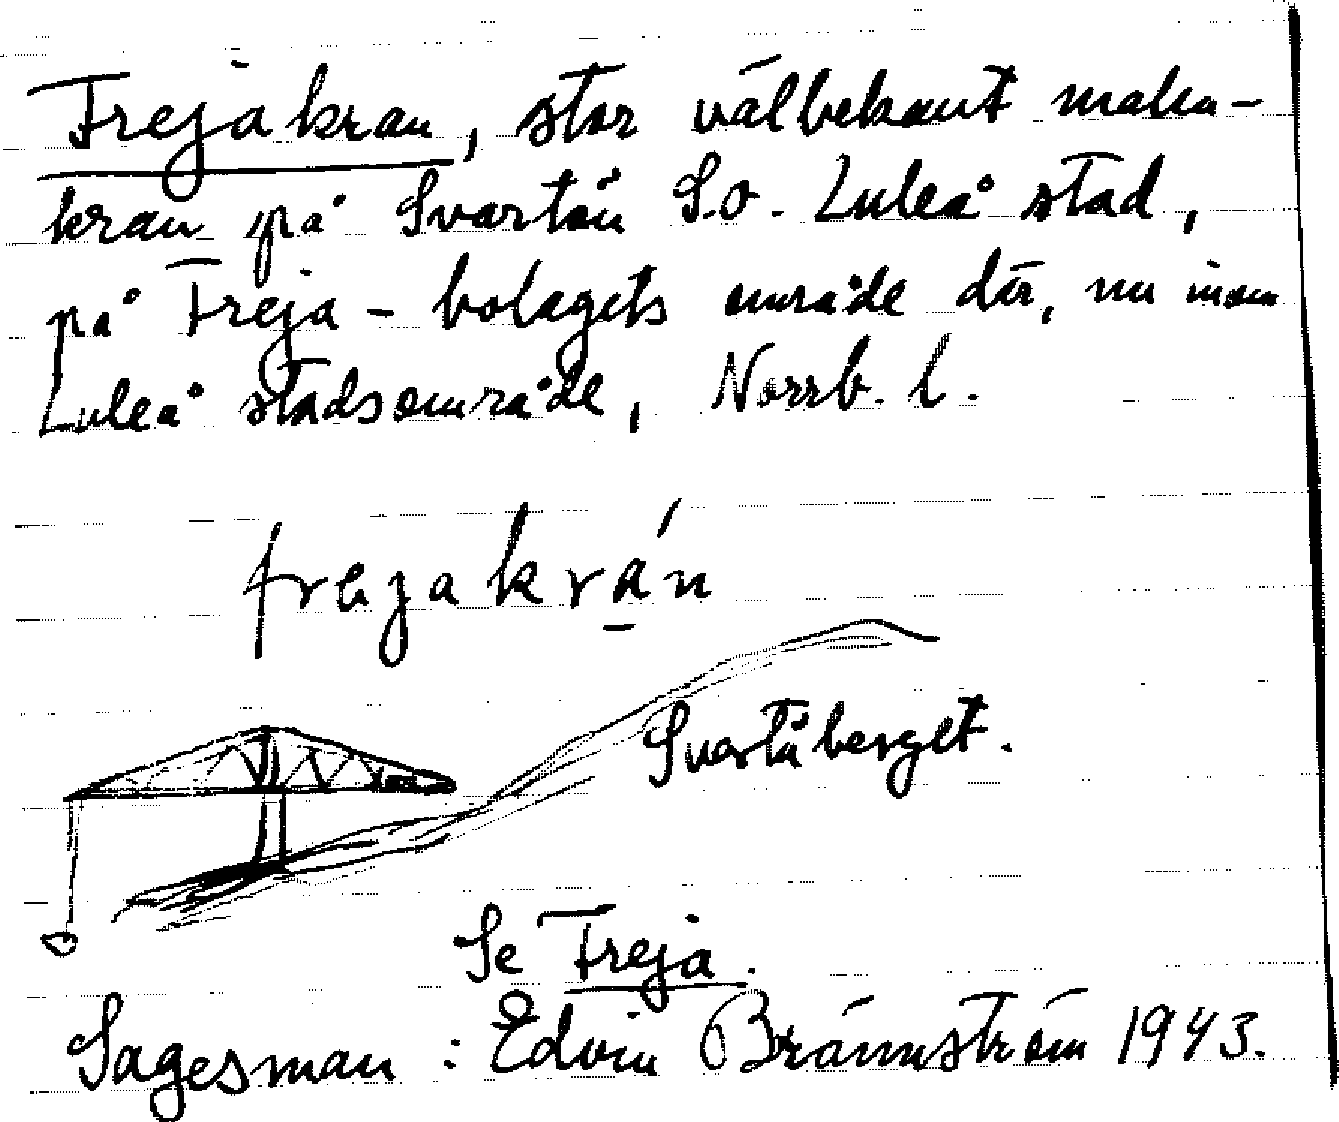 Frejakran, stor välbekant malm-
kran på Svartön S.o. Luleå stad,
på Freja-bolagets område där, nu inom
Luleå stadsområde, Norrb. l.
frejakrán
Svartöberget.
Se Freja.
Sagesman: Edvin Brännström 1943.